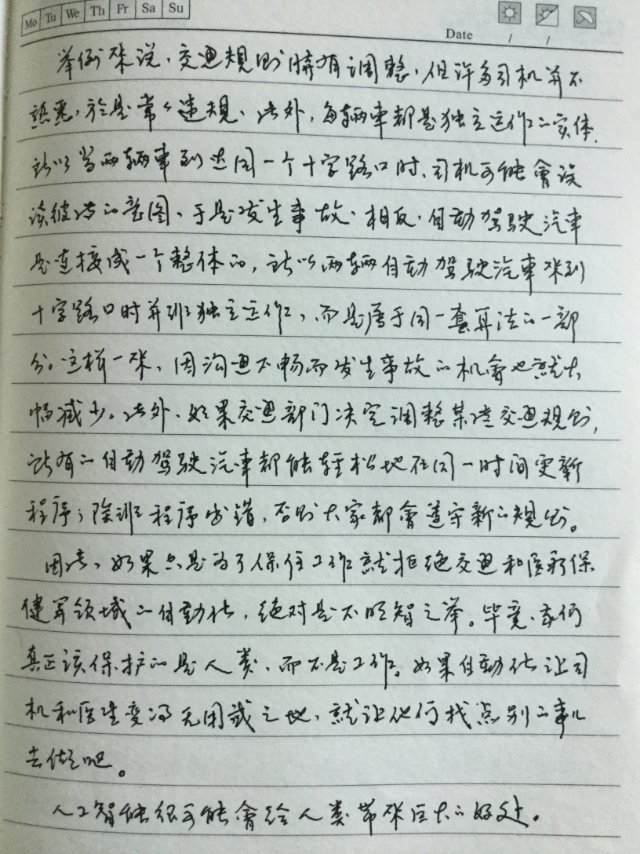 Mo Tu We Th Fr Sa Su
Date / /
举例來说，交通規则時有调整，但许多司机并不
熟悉，於是常々违規。此外，每辆車都是独立运作的实体，
所以当两辆車到达同一个十字路口时，司机可能會误
读彼此的意图，于是发生事故。相反，自动驾驶汽車
是连接成一个整体的，所以两辆自动驾驶汽車來到
十字路口时并非独立运作，而是属于同一套算法的一部
分。这样一來，因沟通不畅而发生事故的机會也就大
幅减少。此外，如果交通部门决定调整某些交通規则，
所有的自动驾驶汽車都能轻松地在同一时间更新
程序；除非程序出错，否则大家都會遵守新的規则。
因此，如果只是为了保住工作就拒绝交通和医疗保
健等领域的自动化，绝对是不明智之举。毕竟，我们
真正该保护的是人类，而不是工作。如果自动化让司
机和医生变得无用武之地，就让他们找点别的事儿
去做吧。
人工智能很可能會给人类带來巨大的好处。